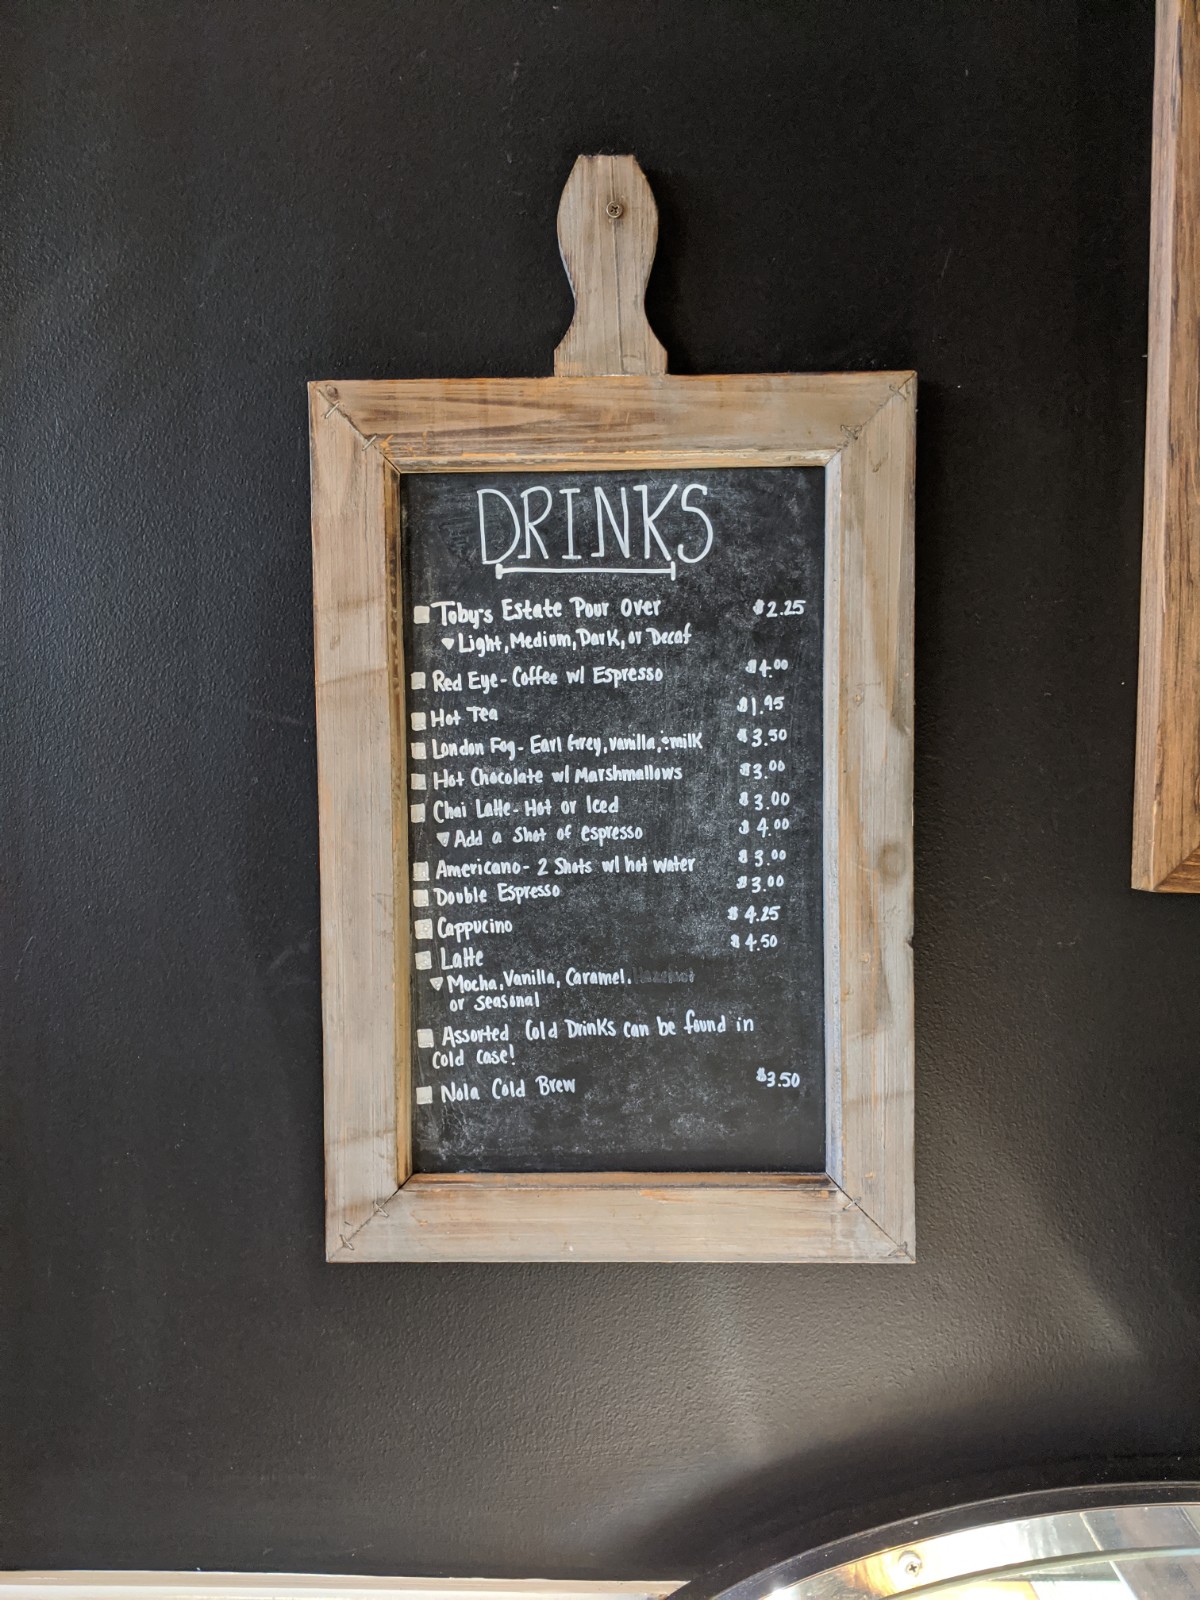 DRINKS
Toby's Estate Pour Over $2.25
Light, Medium, Dark, or Decaf
Red Eye- Coffee w/ Espresso $4.00
Hot Tea $1.95
London Fog- Earl Grey, vanilla, & milk $3.50
Hot Chocolate w/ Marshmallows $3.00
Chai Latte- Hot or Iced $3.00
Add a Shot of espresso $4.00
Americano- 2 Shots w/ hot water $3.00
Double Espresso $3.00
Cappucino $4.25
Latte $4.50
Mocha, Vanilla, Caramel.
or seasonal
Assorted Cold Drinks can be found in
cold case!
Nola Cold Brew $3.50